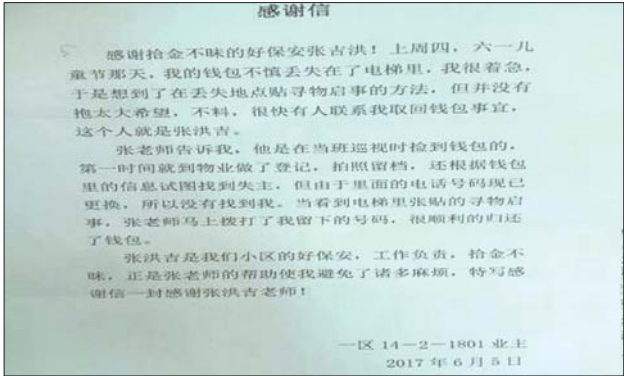 感谢信
感谢拾金不昧的好保安张吉洪！上周四，六一儿
童节那天，我的钱包不慎丢失在了电梯里，我很着急，
于是想到了在丢失地点贴寻物启事的方法，但并没有
抱太大希望，不料，很快有人联系我取回钱包事宜，
这个人就是张洪吉。
张老师告诉我，他是在当班巡视时检到钱包的，
第一时间就到物业做了登记，拍照留档，还根据钱包
里的信息试图找到失主，但由于里面的电话号码现已
更换，所以没有找到我。当看到电梯里张贴的寻物启
事，张老师马上拨打了我留下的号码，很顺利的归还
了钱包。
张洪吉是我们小区的好保安，工作负责，拾金不
昧，正是张老师的帮助使我避免了诸多麻烦，特写感
谢信一封感谢张洪吉老师！
一区 14－2－1801 业主
2017 年 6 月 5 日